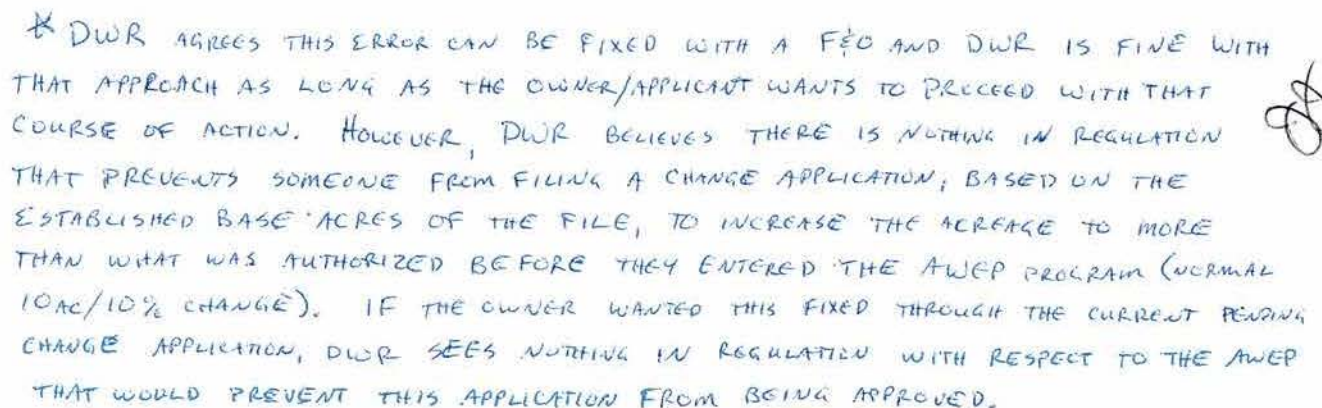 * DWR AGREES THIS ERROR CAN BE FIXED WITH A F&O AND DWR IS FINE WITH
THAT APPROACH AS LONG AS THE OWNER/APPLICANT WANTS TO PROCEED WITH THAT
COURSE OF ACTION. HOWEVER, DWR BELIEVES THERE IS NOTHING IN REGULATION
THAT PREVENTS SOMEONE FROM FILING A CHANGE APPLICATION, BASED ON THE
ESTABLISHED BASE ACRES OF THE FILE, TO INCREASE THE ACREAGE TO MORE
THAN WHAT WAS AUTHORIZED BEFORE THEY ENTERED THE AWEP PROGRAM (NORMAL
10AC/10% CHANGE). IF THE OWNER WANTED THIS FIXED THROUGH THE CURRENT PENDING
CHANGE APPLICATION, DWR SEES NOTHING IN REGULATION WITH RESPECT TO THE AWEP
THAT WOULD PREVENT THIS APPLICATION FROM BEING APPROVED.